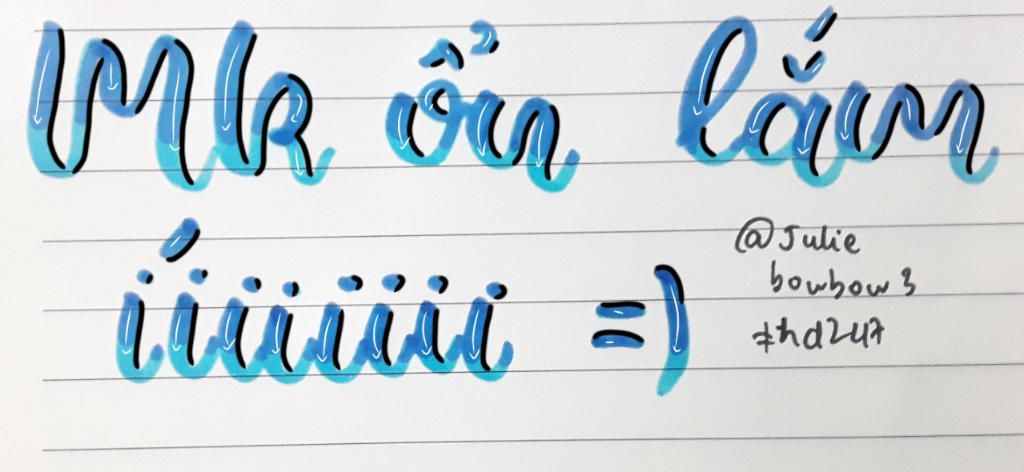 Mk ổn lắm
iíiiiiii =)
@Julie
bowbow3
#hd247